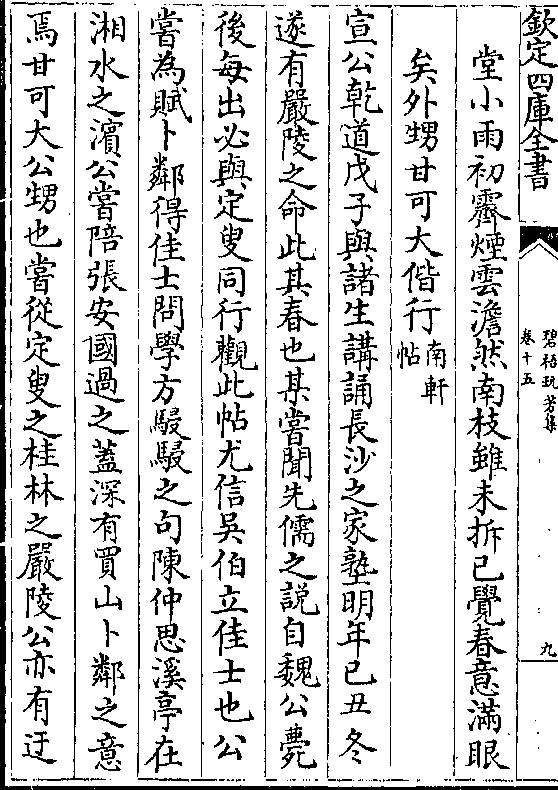 欽定四庫全書
碧梧玩芳集
卷十五
九
堂小雨初霽煙雲澹然南枝雖未拆已覺春意滿眼
矣外甥甘可大偕行南軒帖
宣公乾道戊子與諸生講誦長沙之家塾明年已丑冬
遂有嚴陵之命此其春也某嘗聞先儒之説自魏公薨
後每出必與定叟同行觀此帖尤信吳伯立佳士也公
嘗為賦卜鄰得佳士問學方駸駸之句陳仲思溪亭在
湘水之濵公嘗陪張安國過之蓋深有買山卜鄰之意
焉甘可大公甥也嘗從定叟之桂林之嚴陵公亦有迂